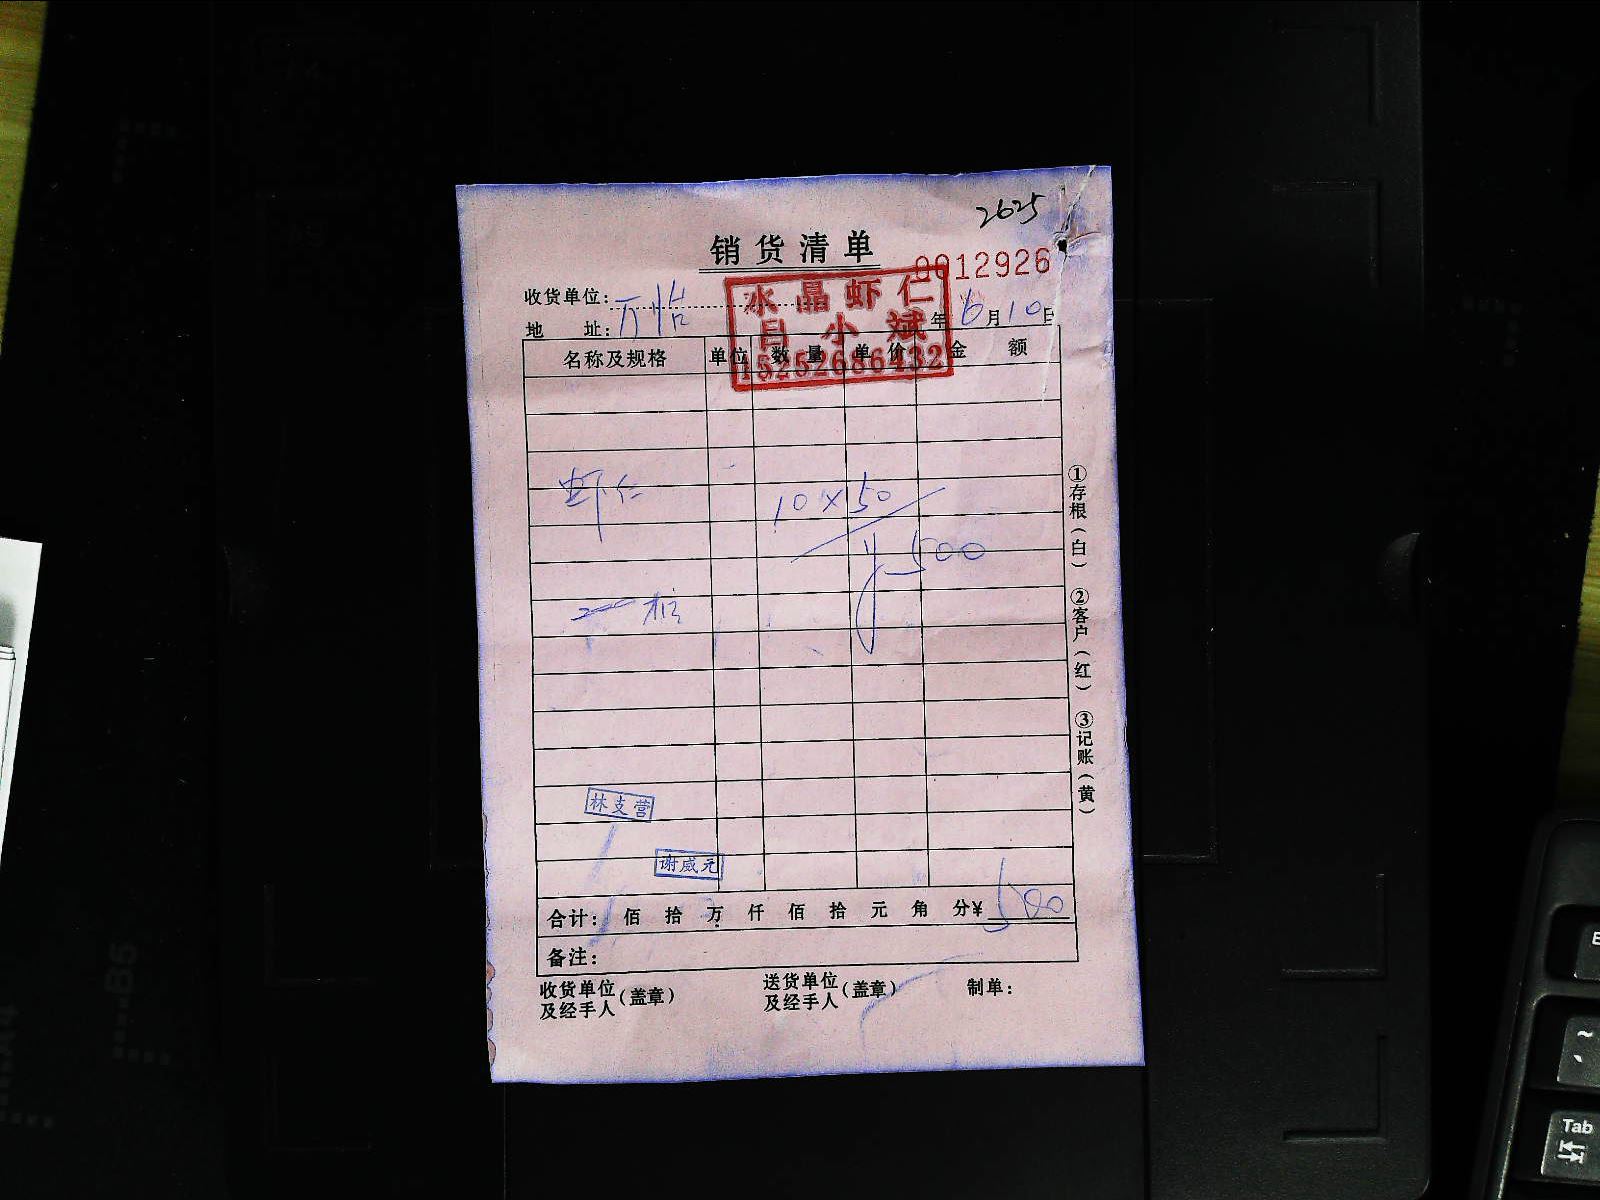 2625
销货清单
0012926
收货单位：万怡
地　　址：
水晶虾仁
吕小斌
15252686432
年 6 月 10 日
名称及规格 单位 数量 单价 金额
虾仁 10×50
¥500
林支营
谢威元
合计： 佰 拾 万 仟 佰 拾 元 角 分¥ 500
备注：
收货单位及经手人（盖章）
送货单位及经手人（盖章）
制单：
①存根（白） ②客户（红） ③记账（黄）
Tab